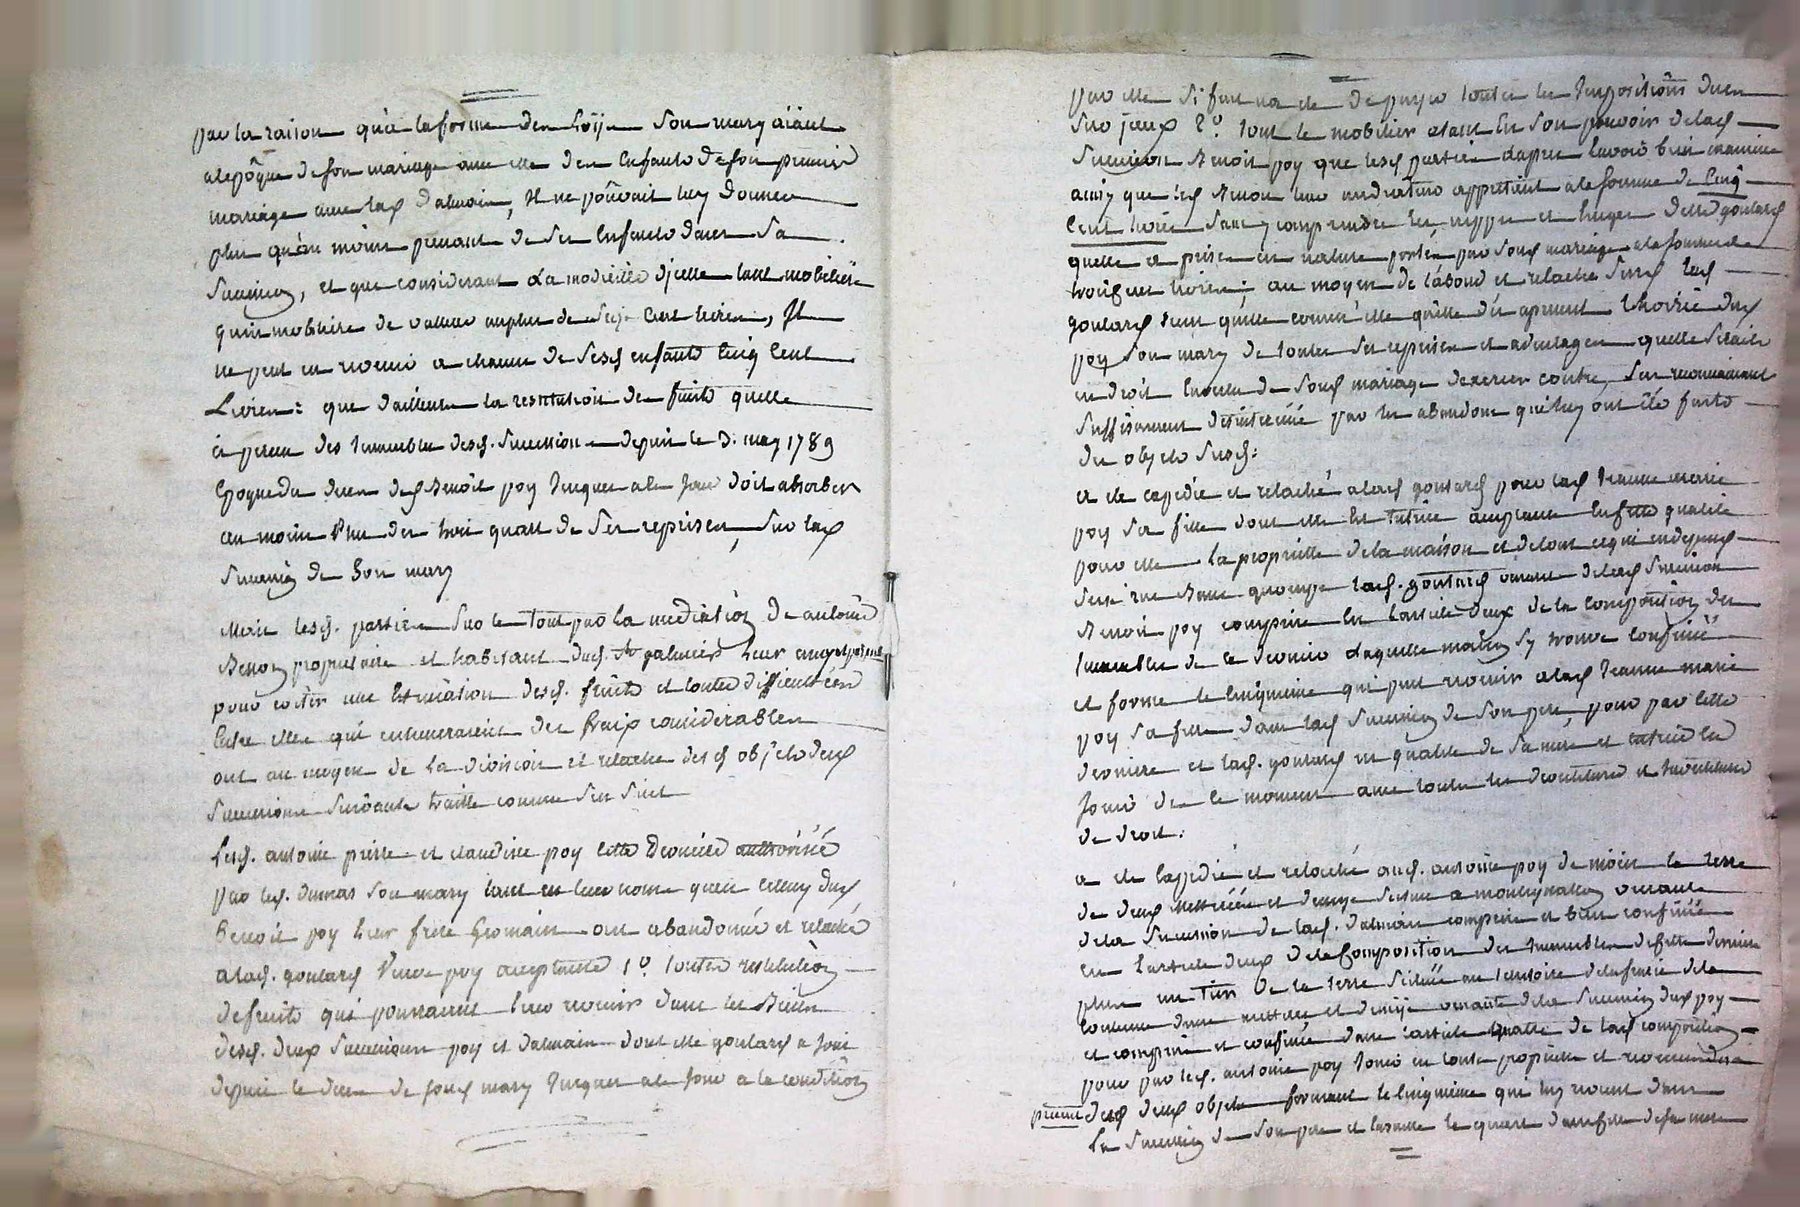 par la raison qu'a la forme des loÿx son mary aïant
a lepôque de son mariage avec elle des Enfants de son premier
mariage avec lad dalmain, Il ne pouvait luy donner
plus qu'au moins prenant de ses Enfants dans sa
succession, et que considerant La modicité d'jcelle tant mobiliere
qu'immobiliere de valleur au plus de cent livres, Il
ne peut en revenir a chacun de sesd enfants cinq Cent
Livres: que dailleurs la restitution des fruits quelle
a perçu des Immeubles desd. succession depuis le 3. may 1789
Epoque du deces dud Benoît poy Jusques a ce Jour doit absorber
au moins l'un des trois quart de ses reprises, sur lad
succession de Son mary
Mais lesd. parties sur le tout par la mediation de antoine
Besson proprietaire et habitant dud. St galmier leur amy
pour eviter une Estimation desd. fruits et toutes difficultées
Entre elles qui entraineraient des fraix considerables
ont au moyen de la division et relache desd objets deux
successions survante traitté comme sen suit
Lesd. antoine pierre et claudine poy cette derniere authorisée
par led. dumas son mary tant en leur noms quen celuy dud
Benoit poy leur frere Germain ont abandonné et relaché
a lad. goutard Veuve poy acceptante 1º. toutes restitution
de fruits qui pourraient leur revenir dans les Biens
desd. deux successions poy et dalmain dont elle goutard a Joui
depuis le deces de soud mary Jusques a ce Jour a la condition
par elle de payer toutes les Impositions dues
sur jceux 2º. tout le mobilier etant En son pouvoir de lad
succession Benoit poy que lesd parties dapres lavoir bien examiné
ainsy que led Besson leur mediateur apprecient a la somme de Cinq
Cent livres sans y comprendre les nippes et linges delle goutard
quelle a prise en nature portés par soud mariage a la somme de
livres; au moyen de labond et relache susd lad
goutard tient quitte comme elle quitte dés apresent Lhoirie dud
poy son mary de toutes ses reprises et avantages quelle serait
en droit Ensuite de soud mariage dexercer contre, sen reconnaissant
suffisament desinteressée par les abandons qui luy ont été faits
des objets susd:
a ete expedié et relaché a lad goutard pour lad Jeanne marie
poy sa fille dont elle Est tutrice acceptante En cette qualité
pour elle la propriette de la maison et de tout ce qui en depend
qu'occupe lad. goutard venant de lad succession
Benoit poy comprise En Larticle deux de la composition des
Immeubles de ce dernier laquelle maison sy trouve confinée
et forme le cinquieme qui peut revenir a lad Jeanne marie
poy sa fille dans lad succession de son pere, pour par cette
derniere et lad. goutard en qualité de sa mere et tutrice En
Jouir de ce moment avec toutes les
de droit.
a ete Expedié et relaché aud. antoine poy de moins la terre
de deux metterées et demye venante
de la succession de lad. dalmain comprise et bien confinée
En larticle deux de la Composition des Immeubles de cette derniere
plus un tiers de la terre scituée au territoire
Contenue dune mettere et demÿe venante de la succession dud poy
et comprise et confinée dans l'article quatre de lad composition
pour par led. antoine poy Jouir en toute propriette
present desd deux objets formant le cinquieme qui luy revient dans
La succession de son pere et Ensuitte le quart dans celle de sa mere